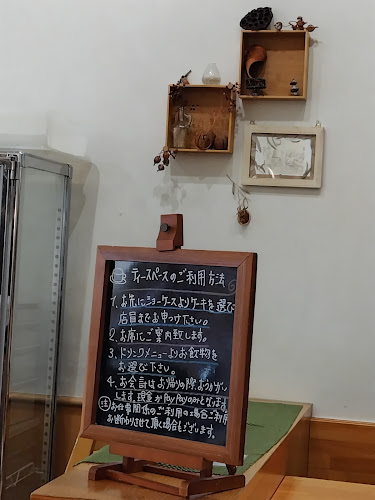 ティースペースのご利用方法
1. お先にショーケースよりケーキを選び
店員までお申つけ下さい。
2. お席にご案内致します。
3. ドリンクメニューよりお飲物を
お選び下さい。
4. お会計はお帰りの際おうかがい
します。現金かPayPayのみとなります
注 お仕事関係のご利用の場合ご利用
お断わりさせて頂く場合もございます。